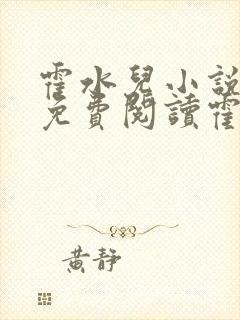 霍水兒小說
免費閱讀霍
黃靜